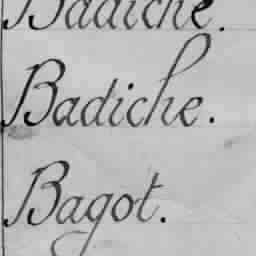 Badiche.
Badiche.
Bagot.